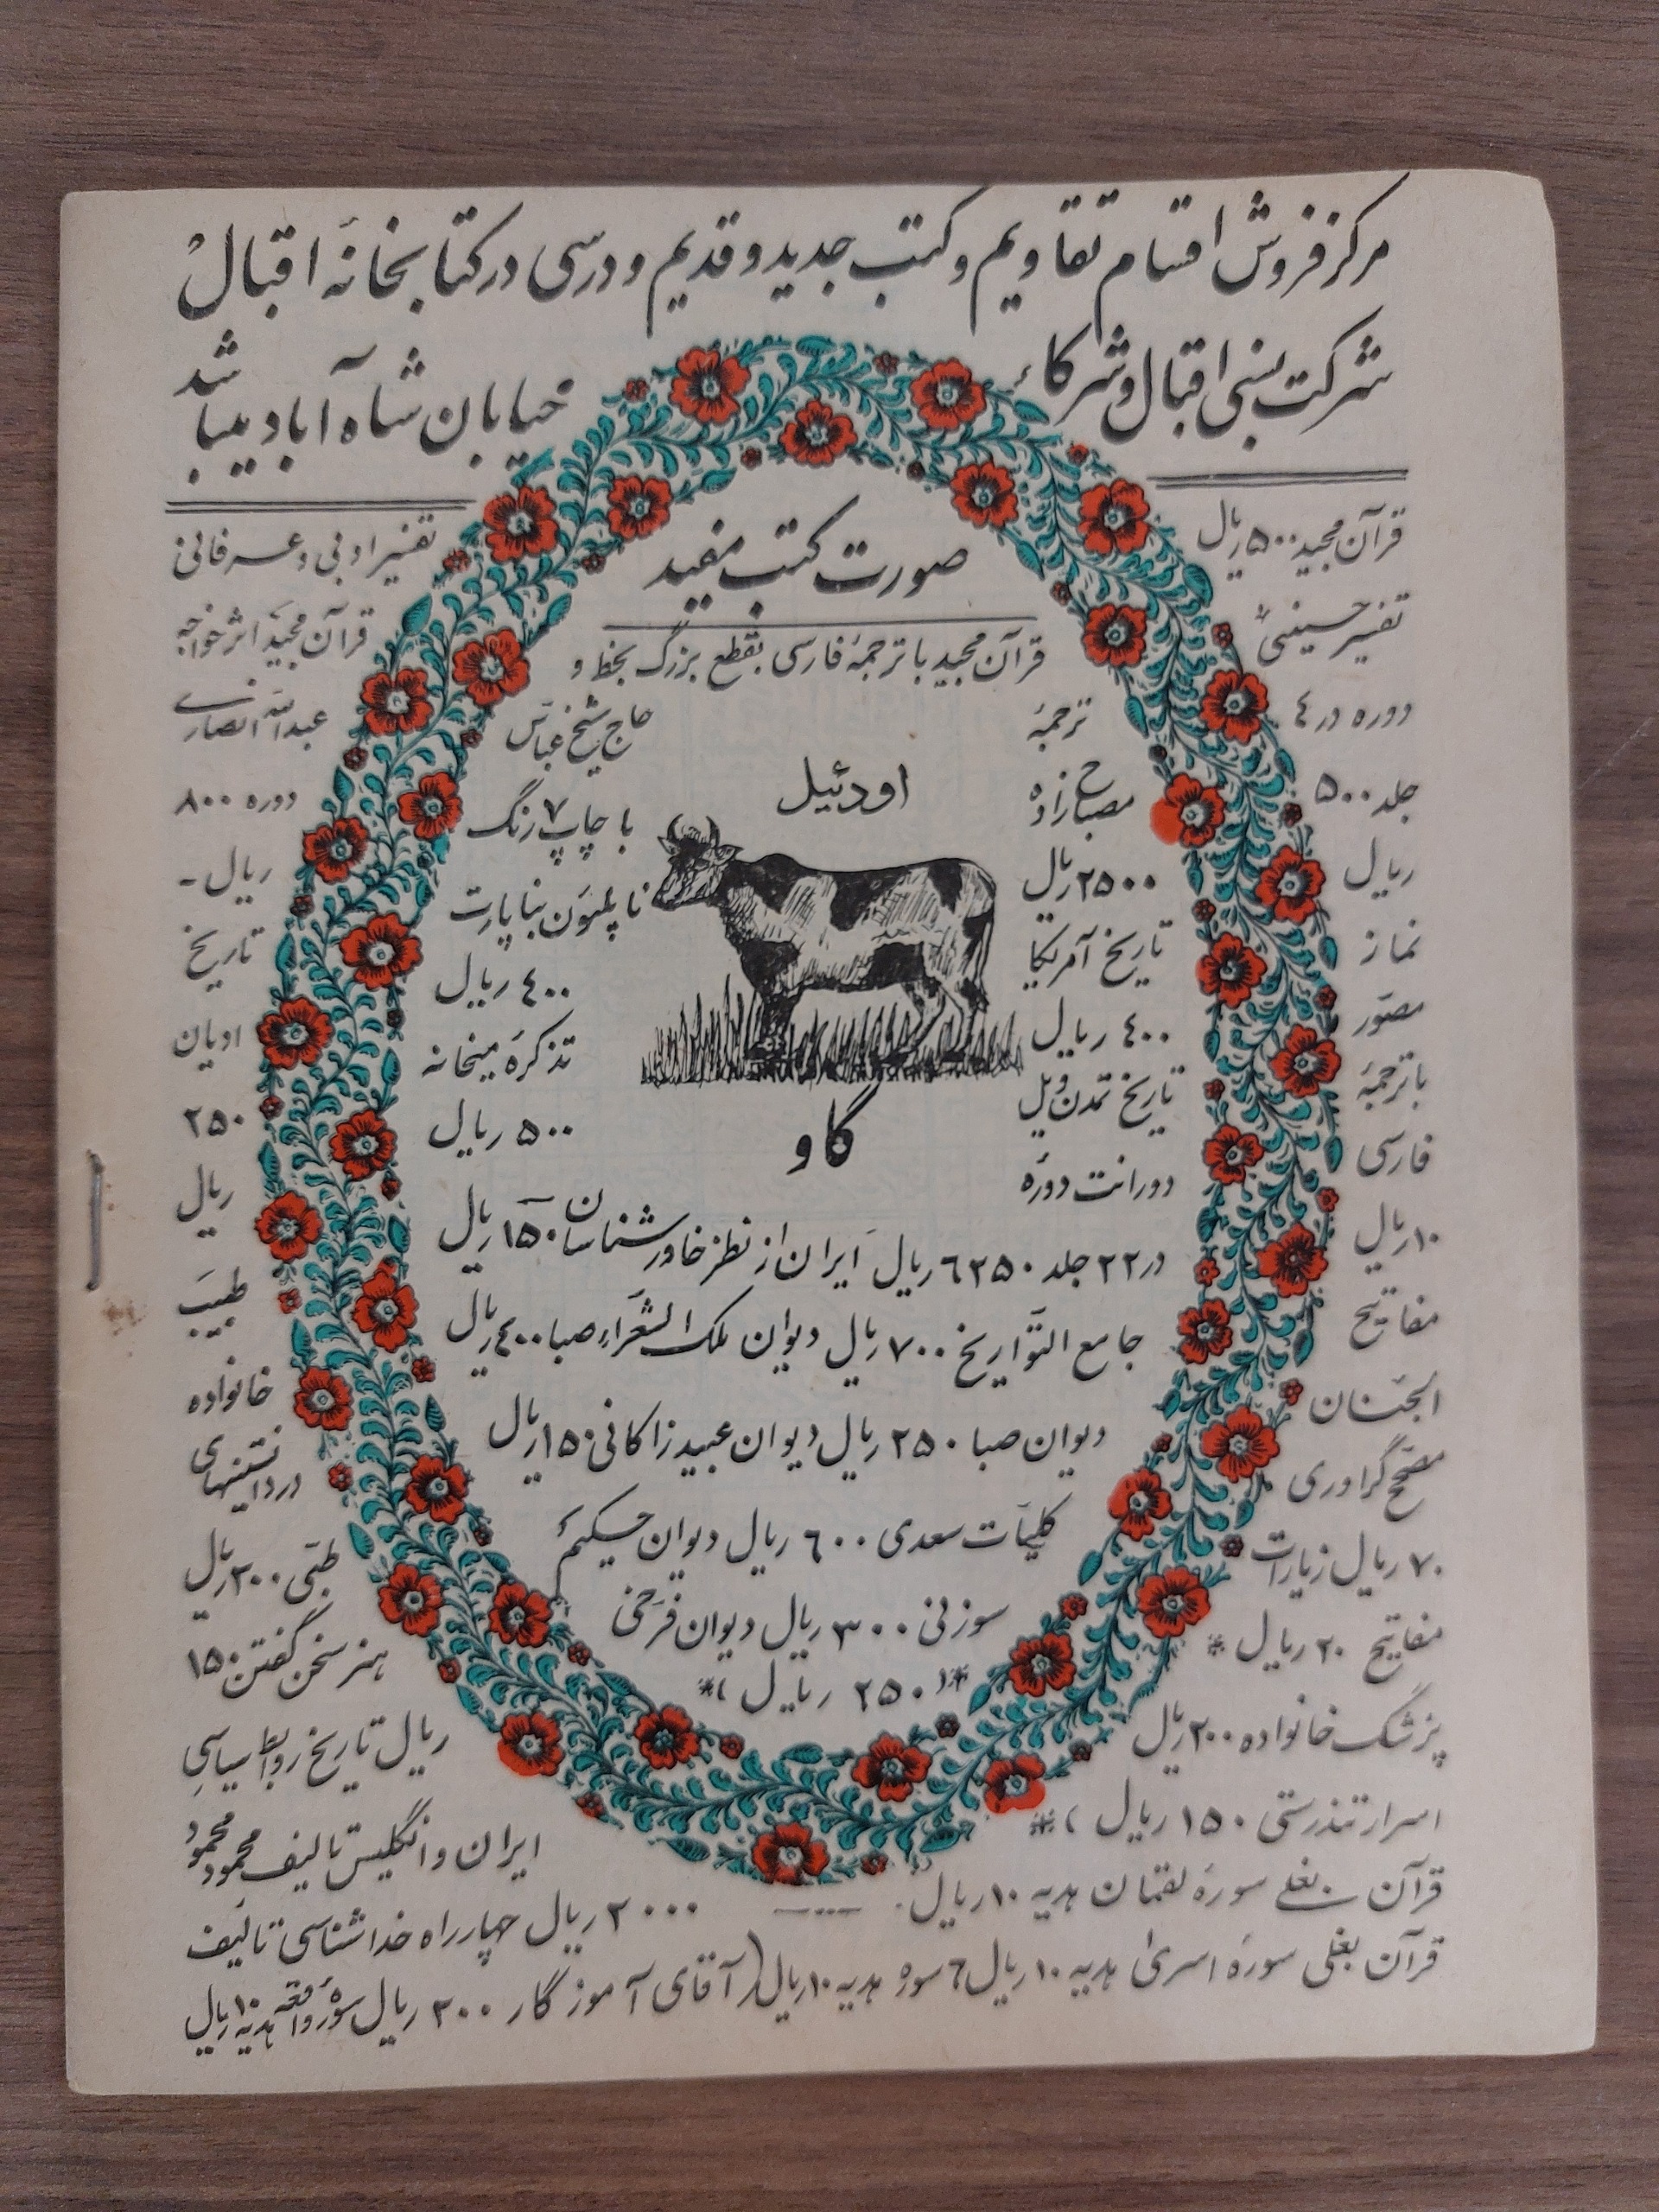 مرکز فروش اقسام تقاویم و کتب جدید و قدیم و درسی در کتابخانهٔ اقبال
شرکت نسبی اقبال و شرکاء
خیابان شاه آباد میباشد
قرآن مجید ۵۰۰ ریال
تفسیر حسینی
دوره در ٤
جلد ۵۰۰
ریال
نماز
مصوّر
با ترجمهٔ
فارسی
۱۰ ریال
مفاتیح
الجنان
مصحح گراوری
۷۰ ریال زیارات
مفاتیح ۲۰ ریال *
پزشک خانواده ۲۰۰ ریال
اسرار تندرستی ۱۵۰ ریال *
قرآن بغلی سورهٔ لقمان هدیه ۱۰ ریال
قرآن بغلی سورهٔ اسری هدیه ۱۰ ریال ٦ سوره هدیه ۱۰ ریال (آقای آموزگار ۲۰۰ ریال سورهٔ واقعه هدیه ۱۰ ریال
صورت کتب مفید
قرآن مجید با ترجمهٔ فارسی بقطع بزرگ بخط و
ترجمهٔ
مصباح زاده
۲۵۰۰ ریال
تاریخ آمریکا
٤۰۰ ریال
تاریخ تمدن ویل
دورانت دوره
اودئیل
گاو
حاج شیخ عباس
با چاپ ۷ رنگ
ناپلیون بناپارت
٤۰۰ ریال
تذکره میخانه
۵۰۰ ریال
در ۲۲ جلد ٦۲۵۰ ریال ایران از نظر خاورشناسان ۱۵۰ ریال
جامع التواریخ ۷۰۰ ریال دیوان ملک الشعراء صبا ٤۰۰ ریال
دیوان صبا ۲۵۰ ریال دیوان عبید زاکانی ۱۵۰ ریال
کلیات سعدی ٦۰۰ ریال دیوان حکیم
سوزنی ۳۰۰ ریال دیوان فرخی
*(۲۵۰ ریال)*
تفسیر ادبی و عرفانی
قرآن مجید اثر خواجه
عبدالله انصاری
دوره ۸۰۰
ریال -
تاریخ
ادیان
۲۵۰
ریال
طبیب
خانواده
در دانستنیهای
طبی ۲۰۰ ریال
هنر سخن گفتن ۱۵۰
ریال تاریخ روابط سیاسی
ایران و انگلیس تالیف محمود محمود
۲۰۰۰ ریال چهار راه خداشناسی تالیف